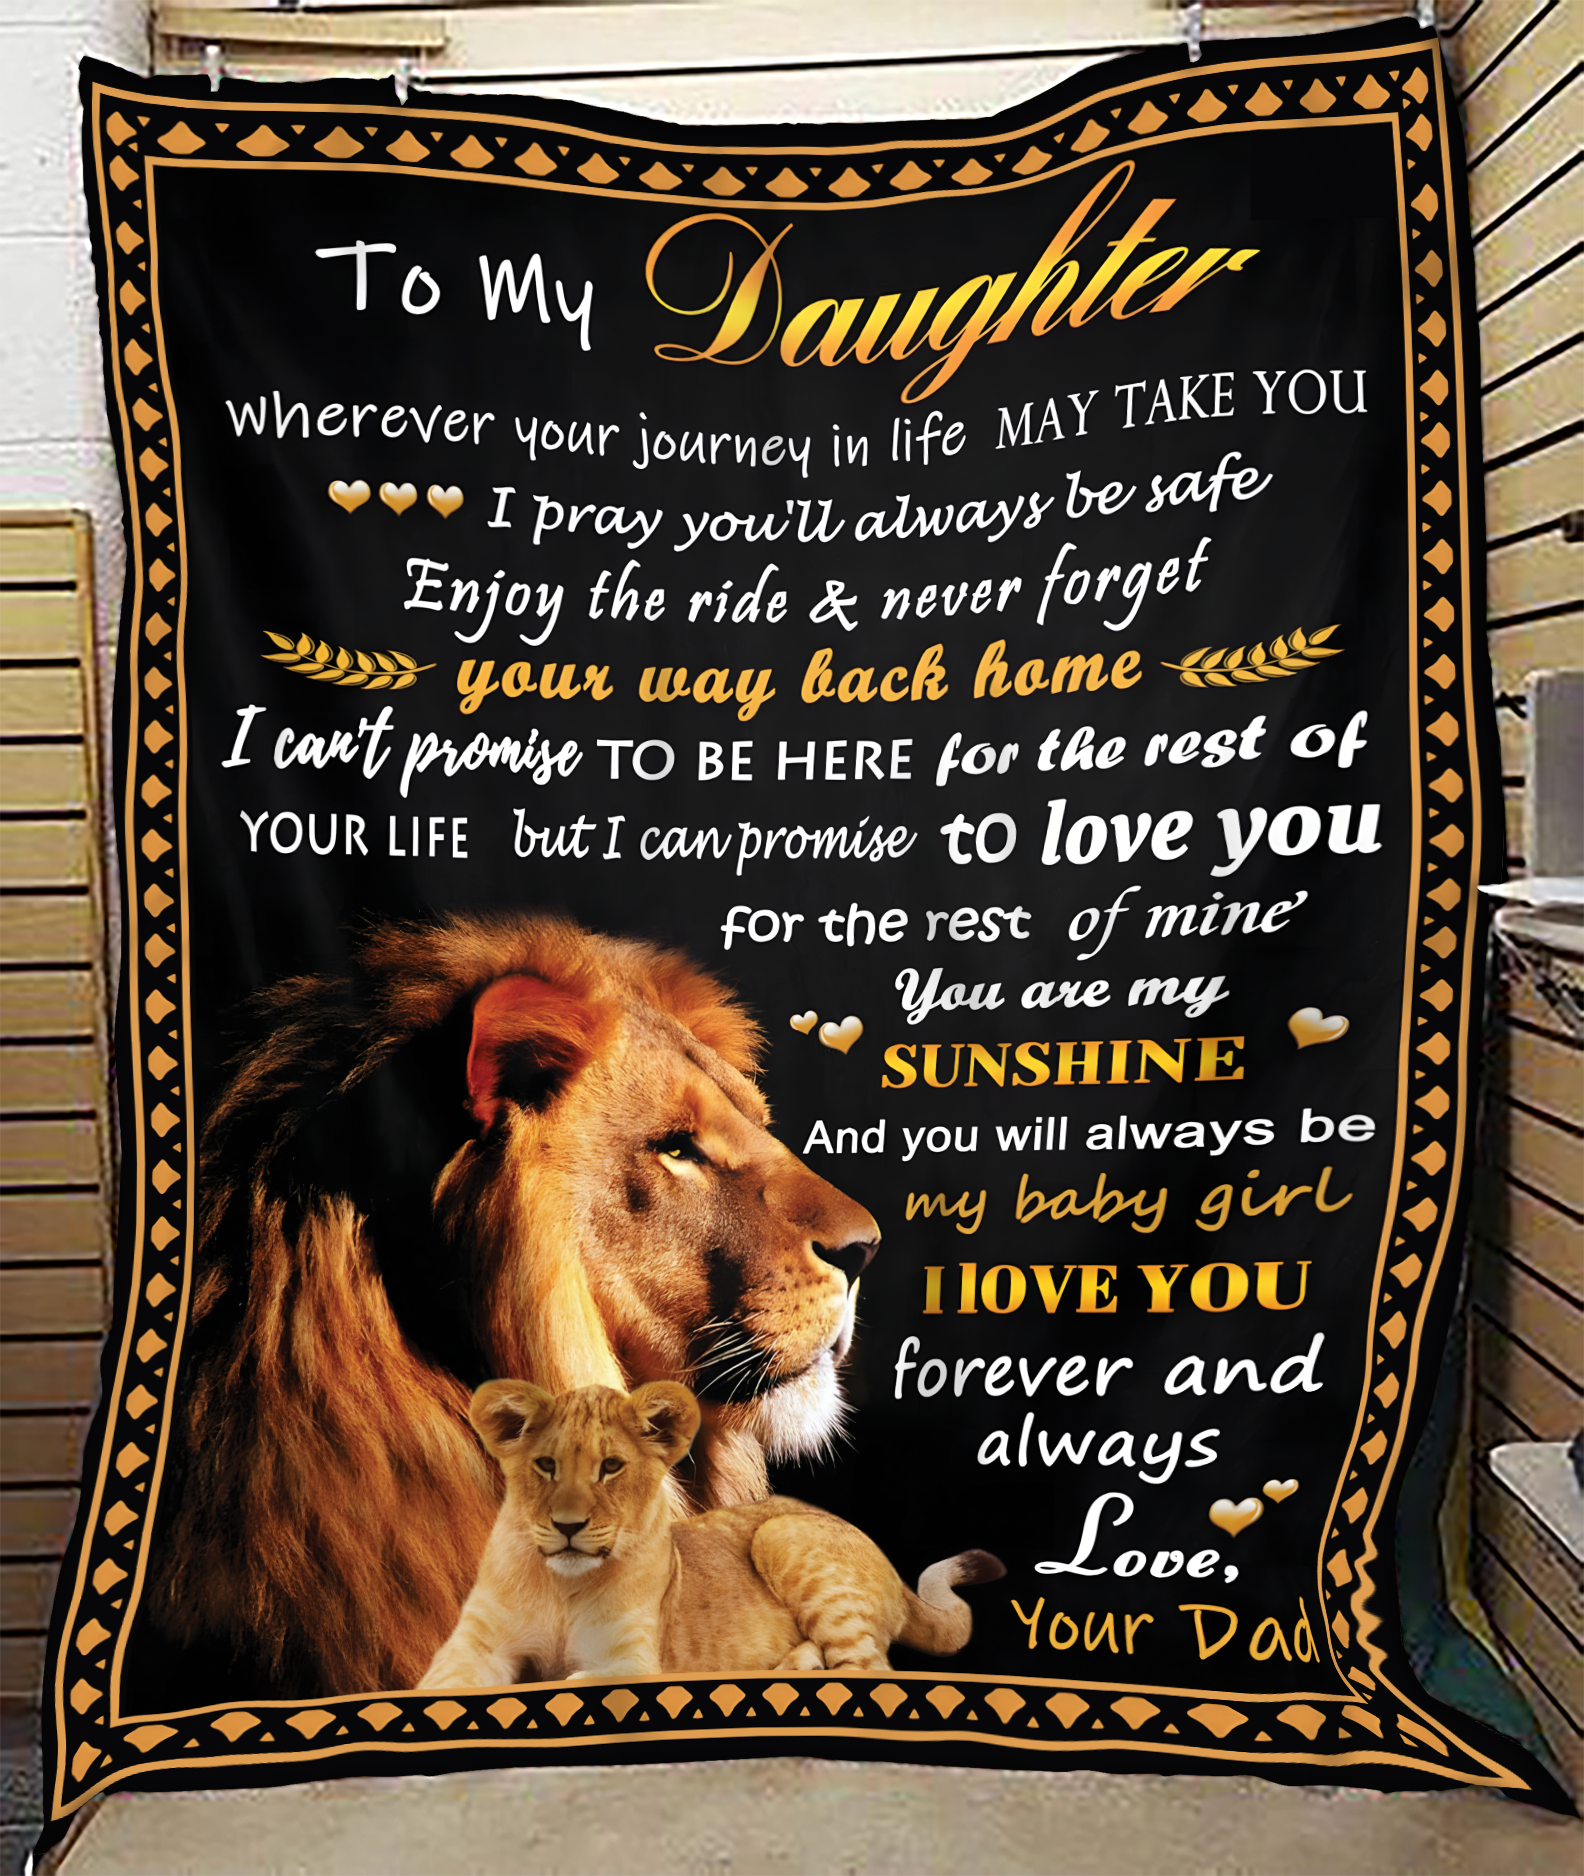 To My Daughter
wherever your journey in life MAY TAKE YOU
I pray you'll always be safe
Enjoy the ride & never forget
your way back home
I can't promise TO BE HERE for the rest of
YOUR LIFE but I can promise to love you
for the rest of mine
You are my
SUNSHINE
And you will always be
my baby girl
I lOVE YOU
forever and
always
Love,
Your Dad